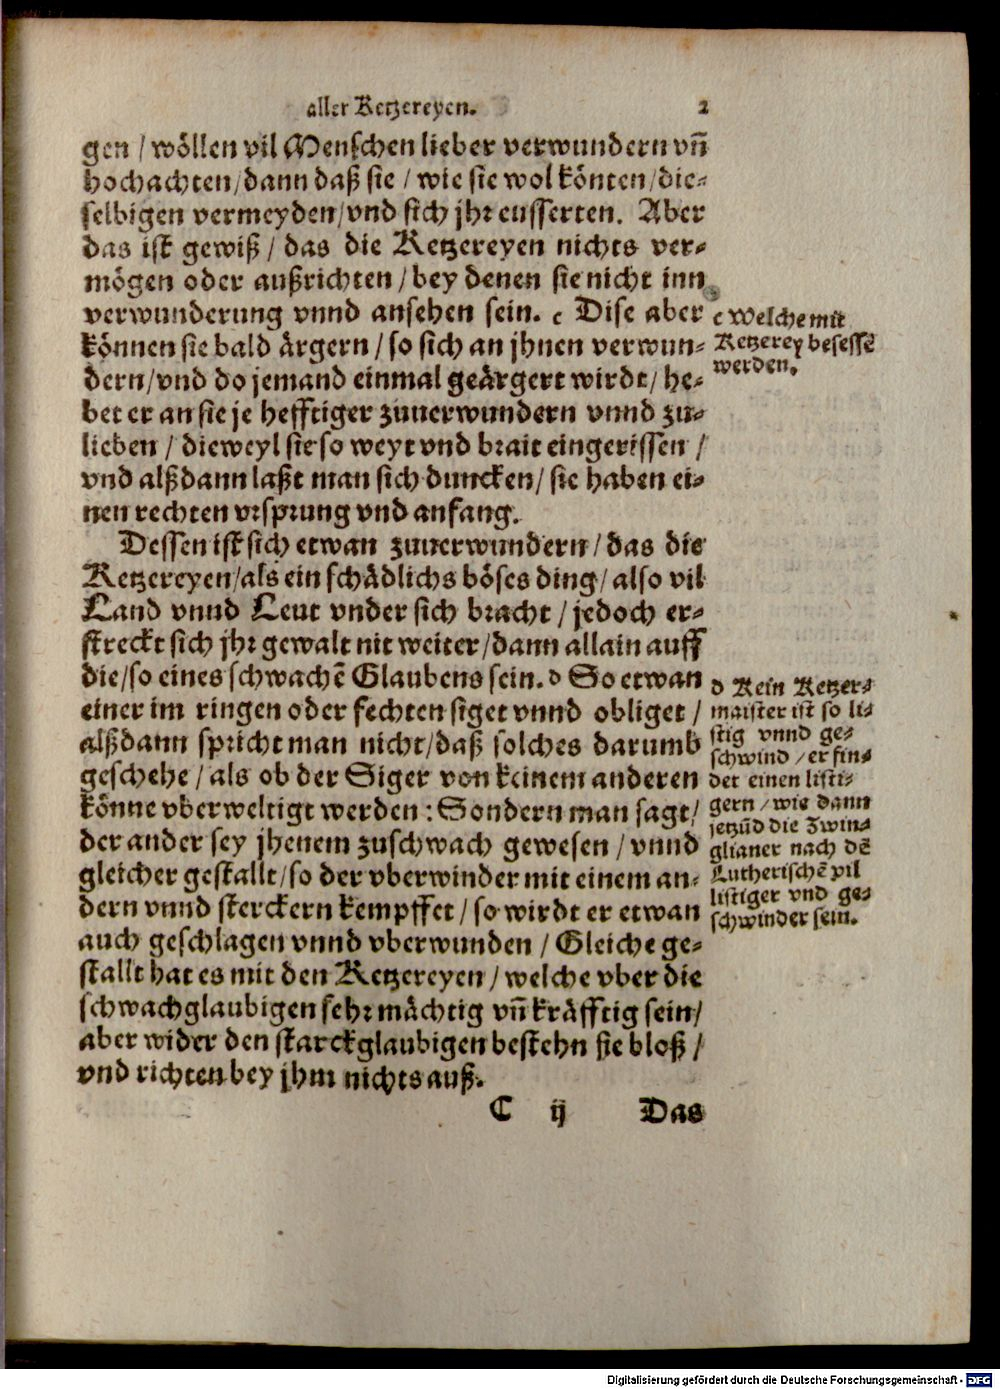 aller Ketzereyen. 2
gen / wöllen vil Menschen lieber verwundern vñ
hochachten / dann daß sie / wie sie wol könten / die-
selbigen vermeyden / vnd sich jhr eusserten. Aber
das ist gewiß / das die Ketzereyen nichts ver-
mögen oder außrichten / bey denen sie nicht inn
verwunderung vnnd ansehen sein. c Dise aber
können sie bald ärgern / so sich an jhnen verwun-
dern / vnd do jemand einmal geärgert wirdt / he-
bet er an sie je hefftiger zuuerwundern vnnd zu-
lieben / dieweyl sie so weyt vnd brait eingerissen /
vnd alßdann laßt man sich duncken / sie haben ei-
nen rechten vrsprung vnd anfang.
Dessen ist sich etwan zuuerwundern / das die
Ketzereyen / als ein schädlichs böses ding / also vil
Land vnnd Leut vnder sich bracht / jedoch er-
streckt sich jhr gewalt nit weiter / dann allain auff
die / so eines schwachẽ Glaubens sein. d So etwan
einer im ringen oder fechten siget vnnd obliget /
alßdann spricht man nicht / daß solches darumb
geschehe / als ob der Siger von keinem anderen
könne vberweltigt werden : Sondern man sagt /
der ander sey jhenem zuschwach gewesen / vnnd
gleicher gestallt / so der vberwinder mit einem an-
dern vnnd sterckern kempffet / so wirdt er etwan
auch geschlagen vnnd vberwunden / Gleiche ge-
stallt hat es mit den Ketzereyen / welche vber die
schwachglaubigen sehr mächtig vñ kräfftig sein /
aber wider den starckglaubigen bestehn sie bloß /
vnd richten bey jhm nichts auß.
C ij Das
c Welche mit
Ketzerey besessẽ
werden.
d Kein Ketzer-
maister ist so li-
stig vnnd ge-
schwind / er fin-
det einen listi-
gern / wie dann
jetzũd die Zwin-
glianer nach dẽ
Lutherischẽ vil
listiger vnd ge-
schwinder sein.
Digitalisierung gefördert durch die Deutsche Forschungsgemeinschaft - DFG